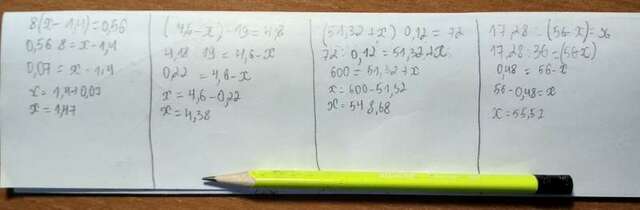 8(x-1,4)=0,56
0,56:8=x-1,4
0,07=x-1,4
x=1,4+0,07
x=1,47
(4,6-x)·19=4,18
4,18:19=4,6-x
0,22=4,6-x
x=4,6-0,22
x=4,38
(51,32+x)·0,12=72
72:0,12=51,32+x
600=51,32+x
x=600-51,32
x=548,68
17,28:(56-x)=36
17,28:36=(56-x)
0,48=56-x
56-0,48=x
x=55,52